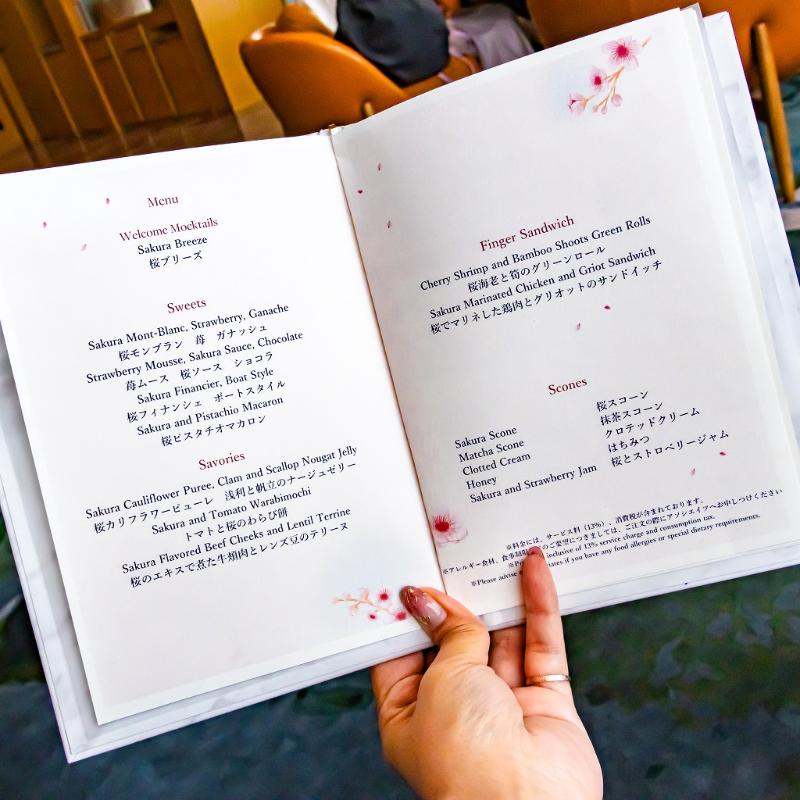 Menu
Welcome Mocktails
Sakura Breeze
桜ブリーズ
Sweets
Sakura Mont-Blanc, Strawberry, Ganache
桜モンブラン 苺 ガナッシュ
Strawberry Mousse, Sakura Sauce, Chocolate
苺ムース 桜ソース ショコラ
Sakura Financier, Boat Style
桜フィナンシェ ボートスタイル
Sakura and Pistachio Macaron
桜ピスタチオマカロン
Savories
Sakura Cauliflower Puree, Clam and Scallop Nougat Jelly
桜カリフラワーピューレ 浅利と帆立のナージュゼリー
Sakura and Tomato Warabimochi
トマトと桜のわらび餅
Sakura Flavored Beef Cheeks and Lentil Terrine
桜のエキスで煮た牛頬肉とレンズ豆のテリーヌ
Finger Sandwich
Cherry Shrimp and Bamboo Shoots Green Rolls
桜海老と筍のグリーンロール
Sakura Marinated Chicken and Griot Sandwich
桜でマリネした鶏肉とグリオットのサンドイッチ
Scones
Sakura Scone 桜スコーン
Matcha Scone 抹茶スコーン
Clotted Cream クロテッドクリーム
Honey はちみつ
Sakura and Strawberry Jam 桜とストロベリージャム
※料金には、サービス料（13%）、消費税が含まれております。
※アレルギー食材、食事制限 のご要望につきましては、ご注文の際にアソシエイツへお申しつけください
inclusive of 13% service charge and consumption tax.
※Please advise if you have any food allergies or special dietary requirements.